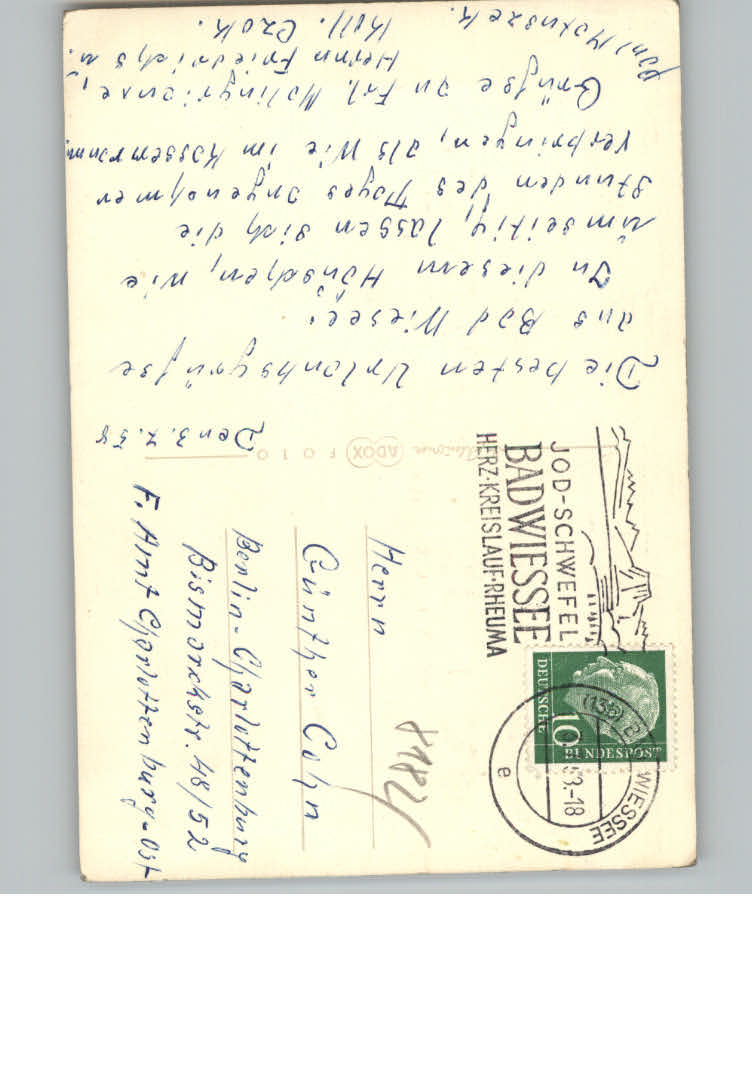 Den 3.7.58
Die besten Urlaubsgrüße
aus Bad Wiessee.
In diesem Häuschen, wie
umseitig, lassen sich die
Stunden des Tages angenehmer
verbringen, als wie im Kassenraum.
Grüße an Frl.
Herrn Friedrichs u.
Koll. Czok.
Herrn
Günther Cohn
Berlin-Charlottenburg
Bismarckstr. 48/52
F. Amt Charlottenburg-Ost
8982
ADOX FOTO
JOD-SCHWEFEL
BAD WIESSEE
HERZ·KREISLAUF·RHEUMA
DEUTSCHE
BUNDESPOST
10
(13b) BAD WIESSEE
58.-18
e